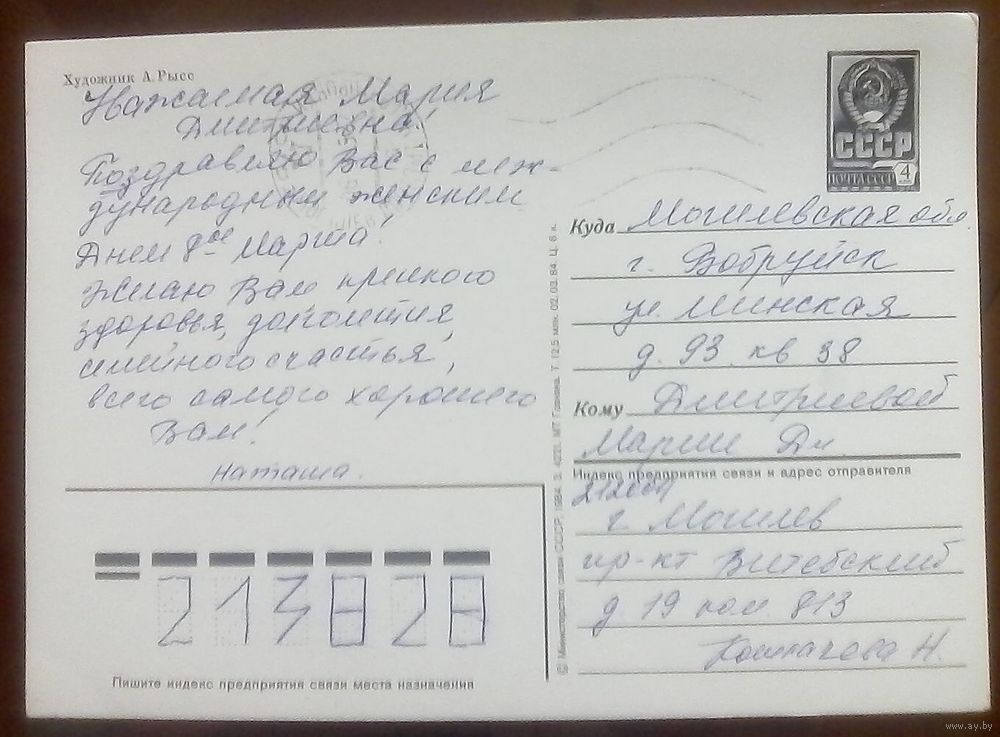 Художник А. Рысс
Уважаемая Мария
Дмитриевна!
Поздравляю Вас с меж-
дународным женским
Днем 8ое Марта!
Желаю Вам крепкого
здоровья, долголетия,
семейного счастья,
всего самого хорошего
Вам!
Наташа.
СССР
ПОЧТА СССР
4
Куда Могилевская обл
г. Бобруйск
ул. Минская
д. 93 кв 38
Кому Дмитриевой
Марии Дм.
Индекс предприятия связи и адрес отправителя
г. Могилев
пр-кт Витебский
д. 19 ком. 813
Н.
213828
Пишите индекс предприятия связи места назначения
© Министерство связи СССР. 1984. З. 4220. МТ Гознака. Т. 12,5 млн. 02.03.84. Ц. 6 к.
www.ay.by